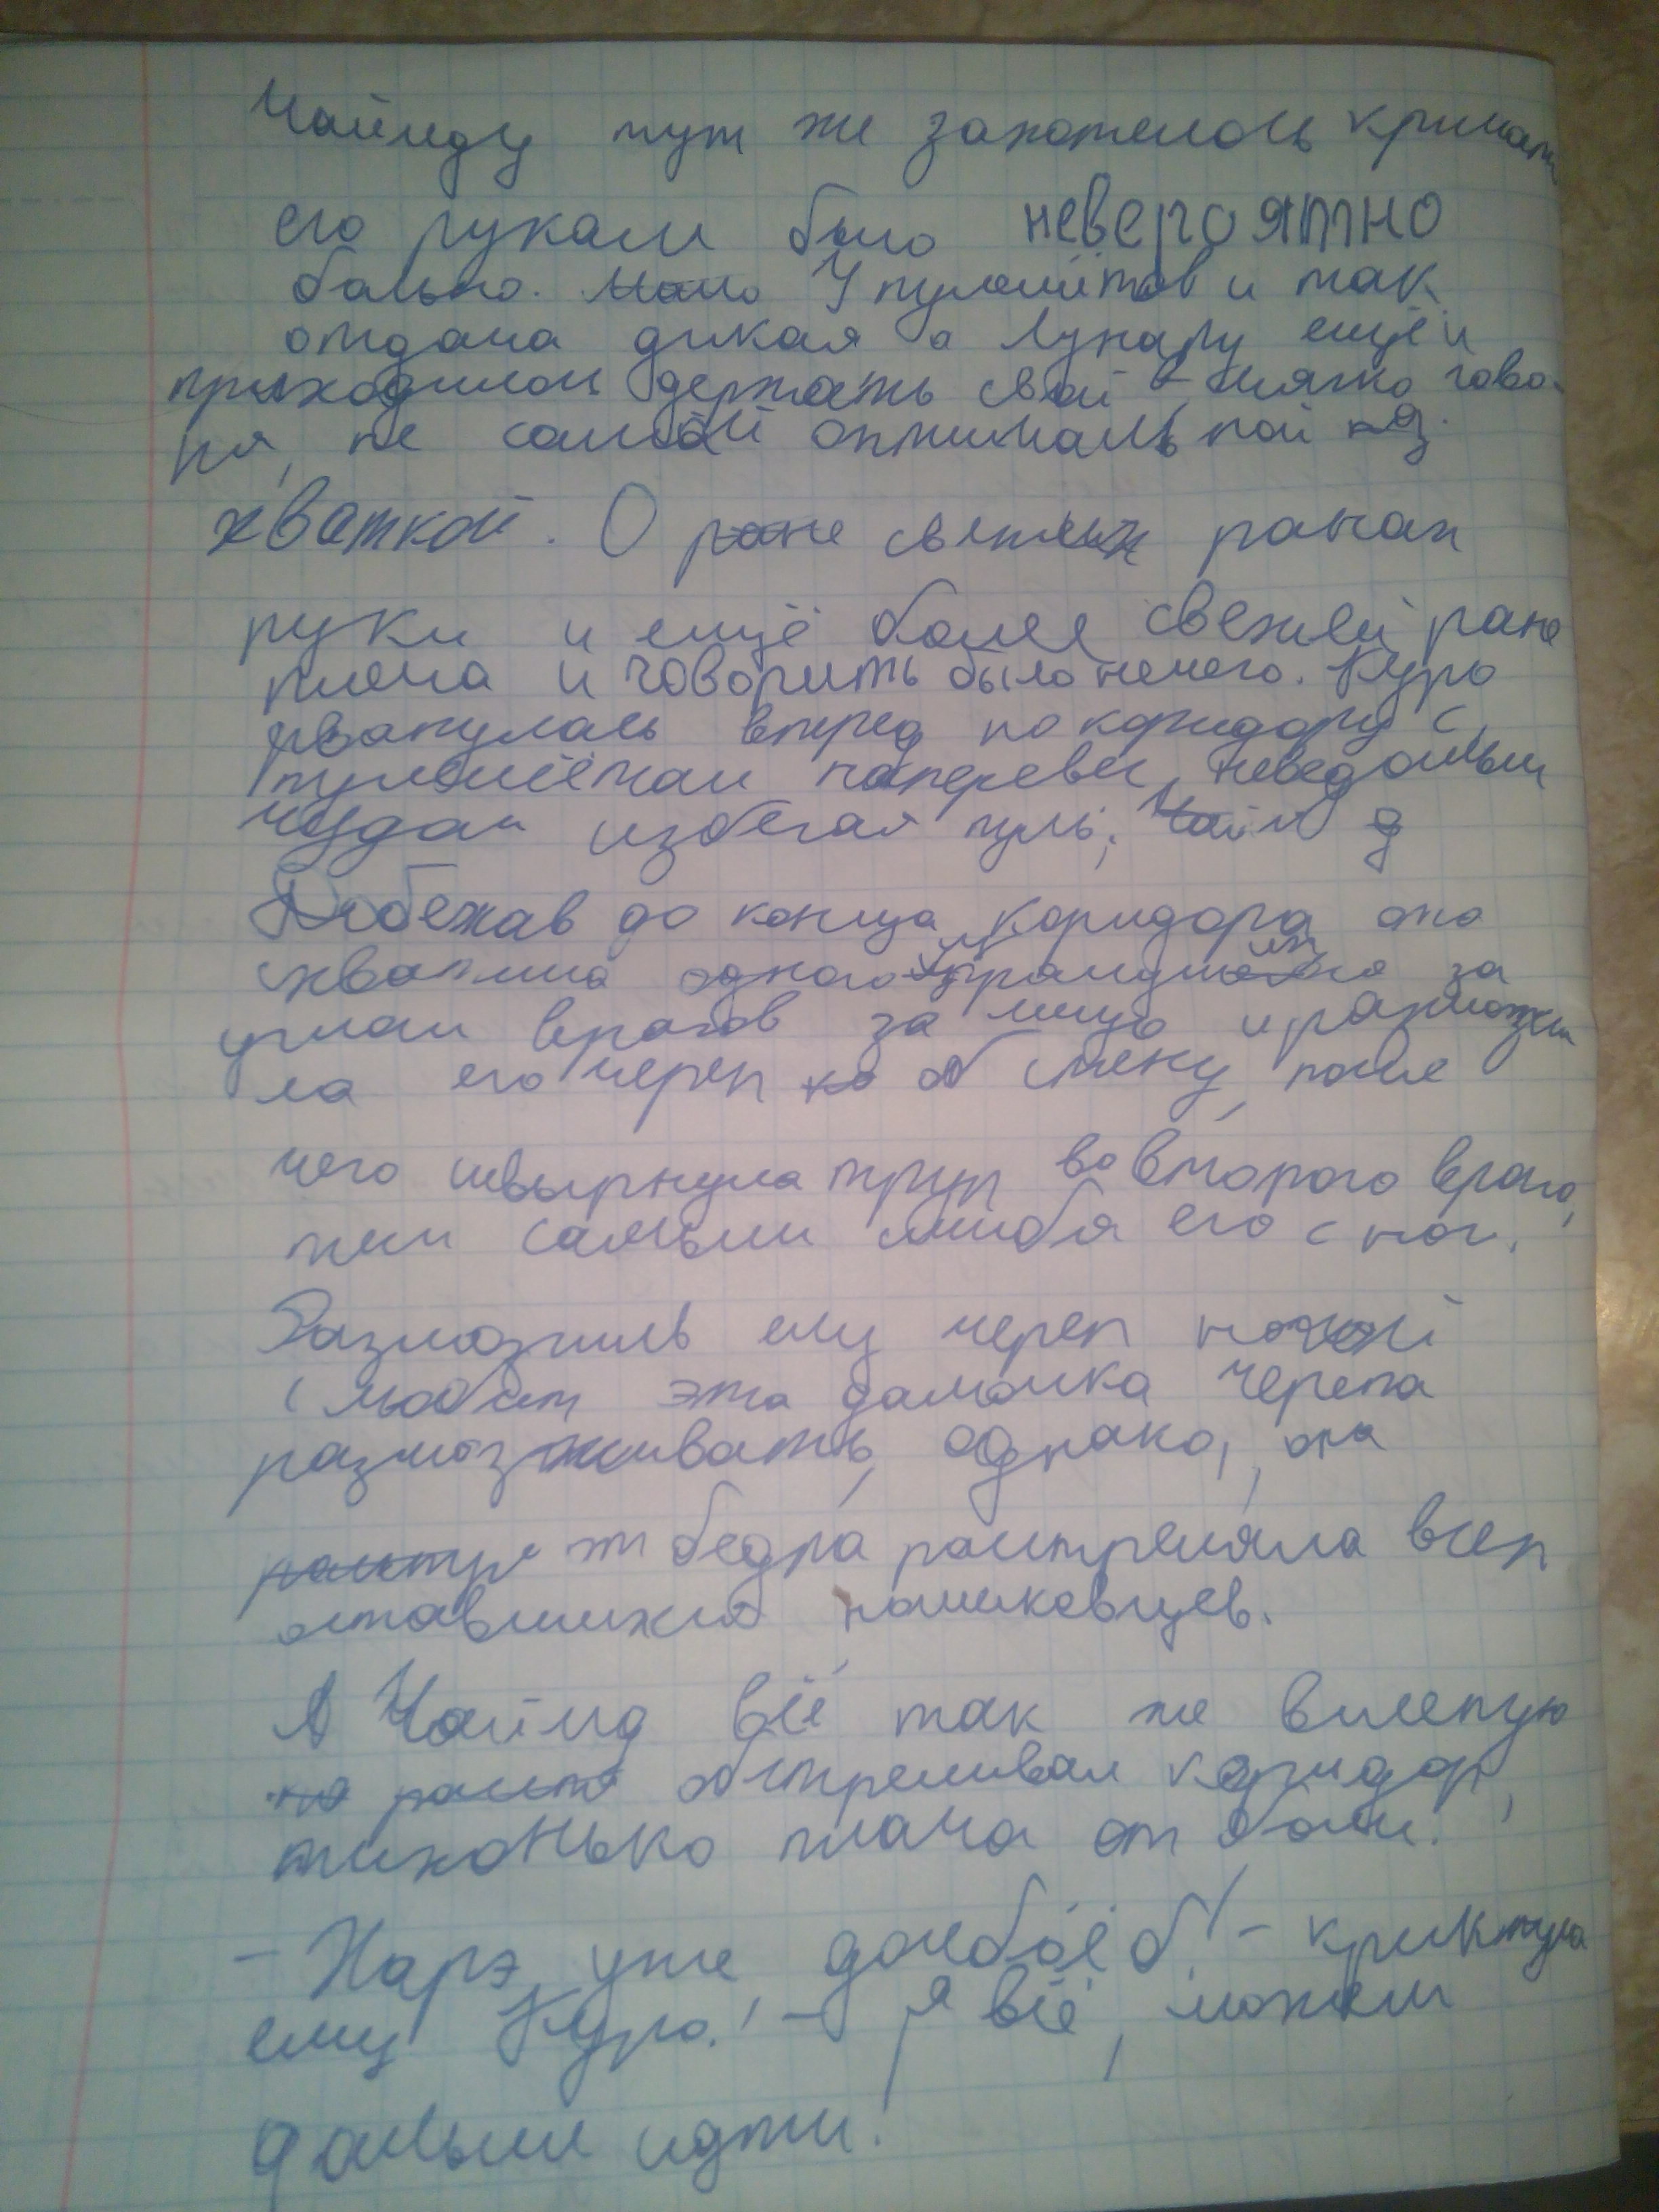 Чайлду тут же захотелось кричать
его рукам было невероятно
больно. Мало У пулемётов и так
отдача дикая а Лунару ещё и
приходилось держать свой – мягко гово-
ря, не самой оптимальной
хваткой. О ране свежих ранах
руки и ещё более свежей ране
плеча и говорить было нечего. Куро
рванулась вперед по коридору с
пулемётом наперевес, неведомым
чудом избегая пуль. Чайлд
Добежав до конца коридора она
схватила одного за
углом врагов за лицо и размозжи
ла его череп об стену, после
чего швырнула труп во второго врага,
тем самым сшибая его с ног.
Размозжив ему череп ногой
(любит эта дамочка черепа
размозживать, однако, она
расстре от бедра расстреляла всех
оставшихся
А Чайлд всё так же вслепую
обстреливал коридор,
тихонько плача от боли.
– Харэ уже, долбоёб! – крикнула
ему Куро. – я всё, можем
дальше идти!